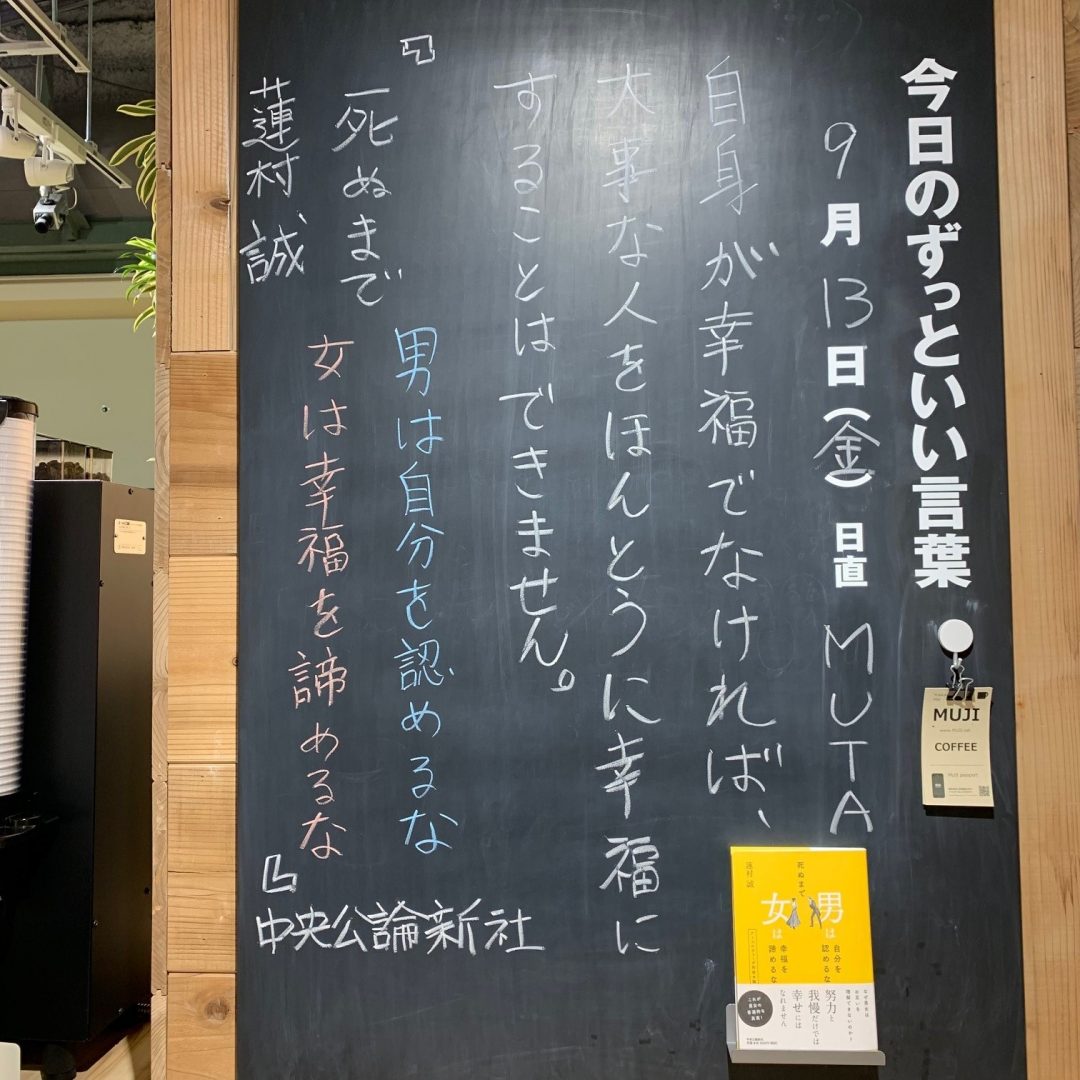 今日のずっといい言葉
9月13日(金) 日直 MUTA
自身が幸福でなければ、
大事な人をほんとうに幸福に
することはできません。
『死ぬまで
男は自分を認めるな
女は幸福を諦めるな』
蓮村 誠
中央公論新社
MUJI
COFFEE
蓮村 誠
死ぬまで
男は
自分を
認めるな
女は
幸福を
諦めるな
なぜ男女は
お互いを
理解できないのか!
努力と
我慢だけでは
幸せには
なれません